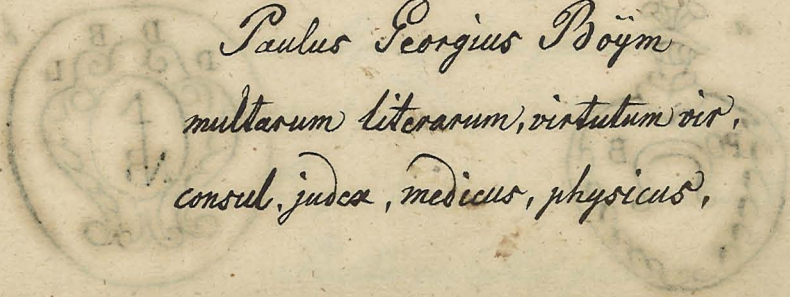 Paulus Georgius Böÿm
multarum literarum, virtutum vir,
consul, judex, medicus, physicus,